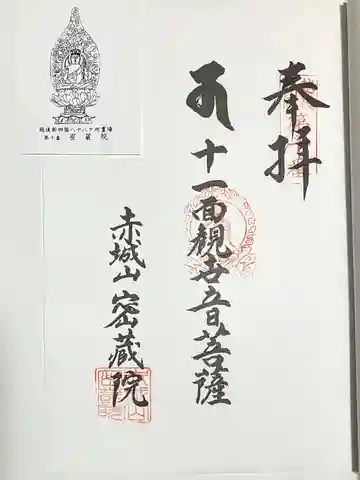 奉拝
十一面観世音菩薩
赤城山密蔵院
越後新四国八十八ケ所霊場
第十番 密蔵院